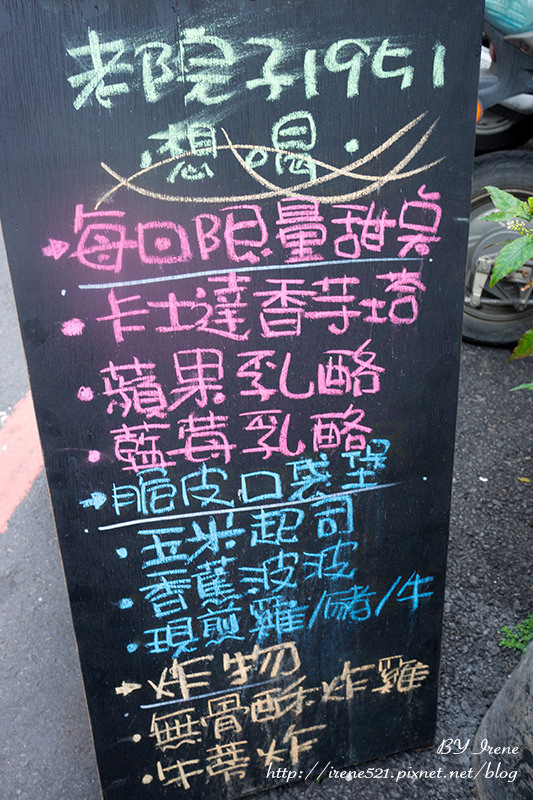 老院子1951
·想喝·
→每日限量甜点
·卡士達香芋塔
·蘋果乳酪
·藍莓乳酪
→脆皮口袋堡
·玉米起司
·香蕉波波
·現煎雞/豬/牛
→炸物
·無骨酥炸雞
·牛蒡炸
BY Irene
http://irene521.pixnet.net/blog